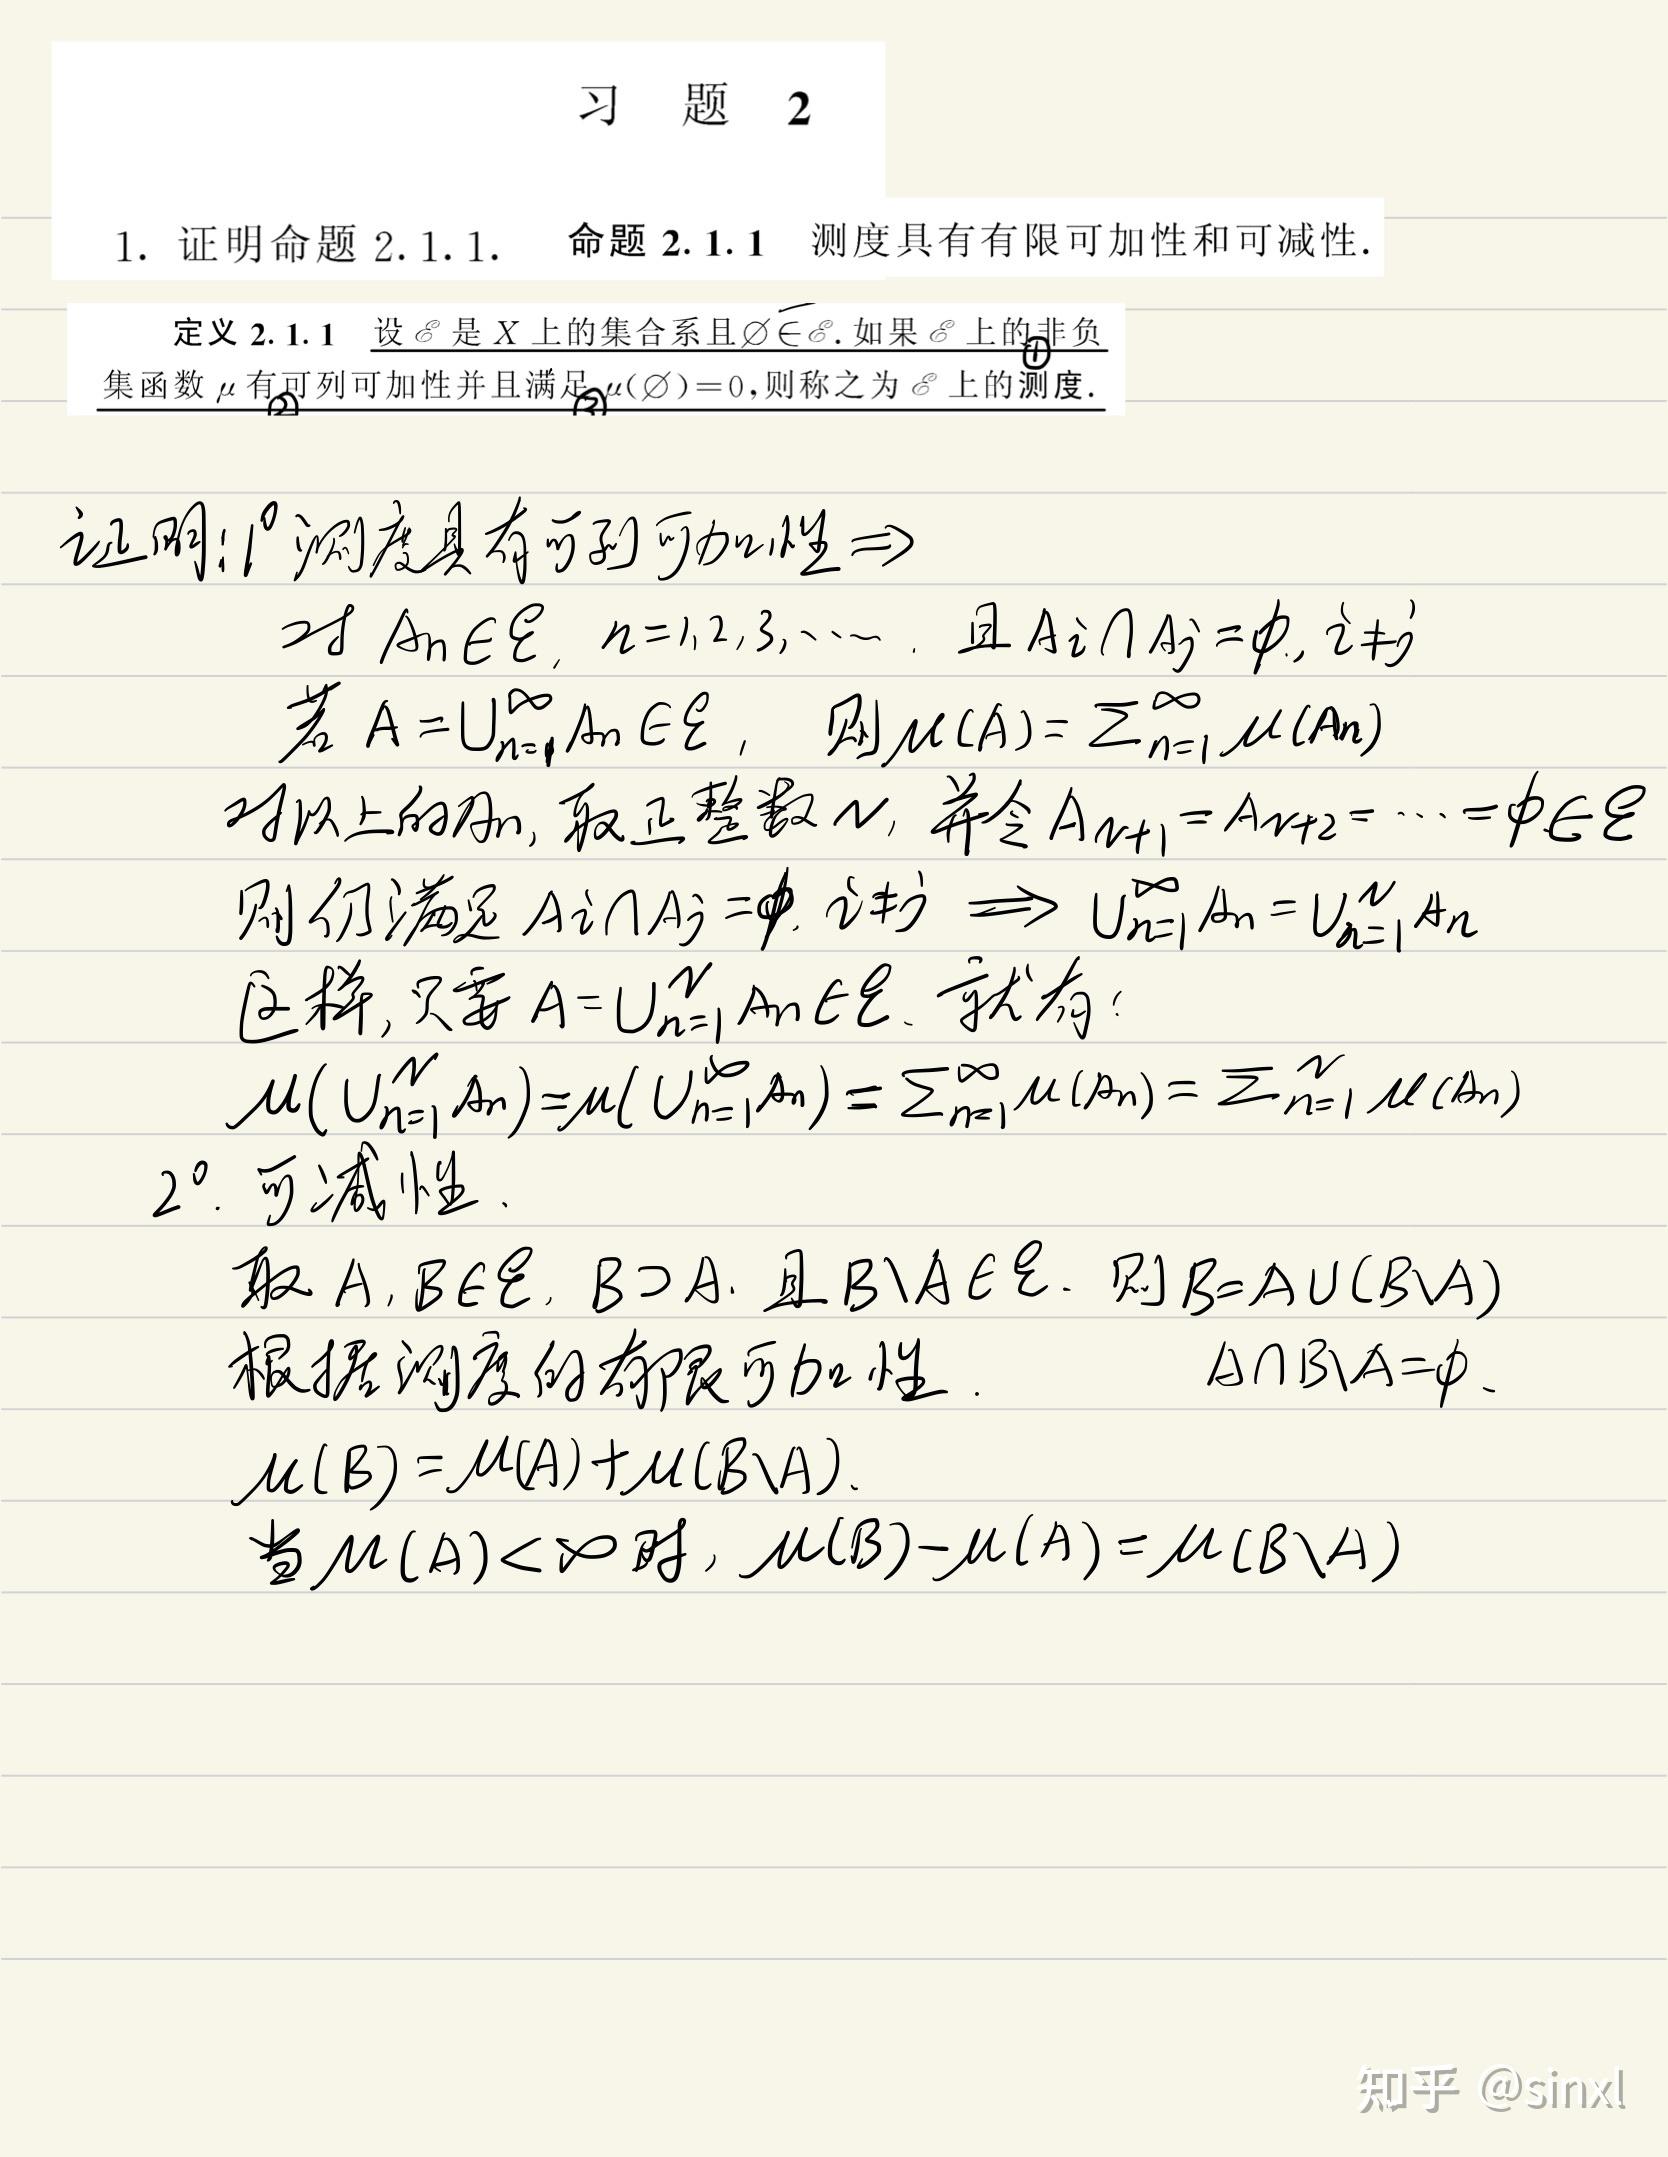 习 题 2
1. 证明命题 2.1.1. 命题 2.1.1 测度具有有限可加性和可减性.
定义 2.1.1 设 ℰ 是 X 上的集合系且∅∈ℰ. 如果 ℰ 上的非负
①
集函数 μ 有可列可加性并且满足 μ(∅)=0,则称之为 ℰ 上的测度.
② ③
证明:1° 测度具有可列可加性 ⇒
对 An∈ℰ, n=1,2,3,…… . 且 Ai∩Aj=φ., i≠j
若 A=∪_{n=1}^∞ An∈ℰ, 则 μ(A)=∑_{n=1}^∞ μ(An)
对以上的An, 取正整数 N, 并令 A_{N+1}=A_{N+2}=…=φ∈ℰ
则仍满足 Ai∩Aj=φ. i≠j ⟹ ∪_{n=1}^∞ An=∪_{n=1}^N An
这样, 只要 A=∪_{n=1}^N An∈ℰ、就有:
μ(∪_{n=1}^N An)=μ(∪_{n=1}^∞ An)=∑_{n=1}^∞ μ(An)=∑_{n=1}^N μ(An)
2°. 可减性.
取 A, B∈ℰ, B⊃A. 且 B\A∈ℰ. 则 B=A∪(B\A)
根据测度的有限可加性. A∩B\A=φ、
μ(B)=μ(A)+μ(B\A).
当 μ(A)<∞ 时, μ(B)-μ(A)=μ(B\A)
知乎 @sinxl